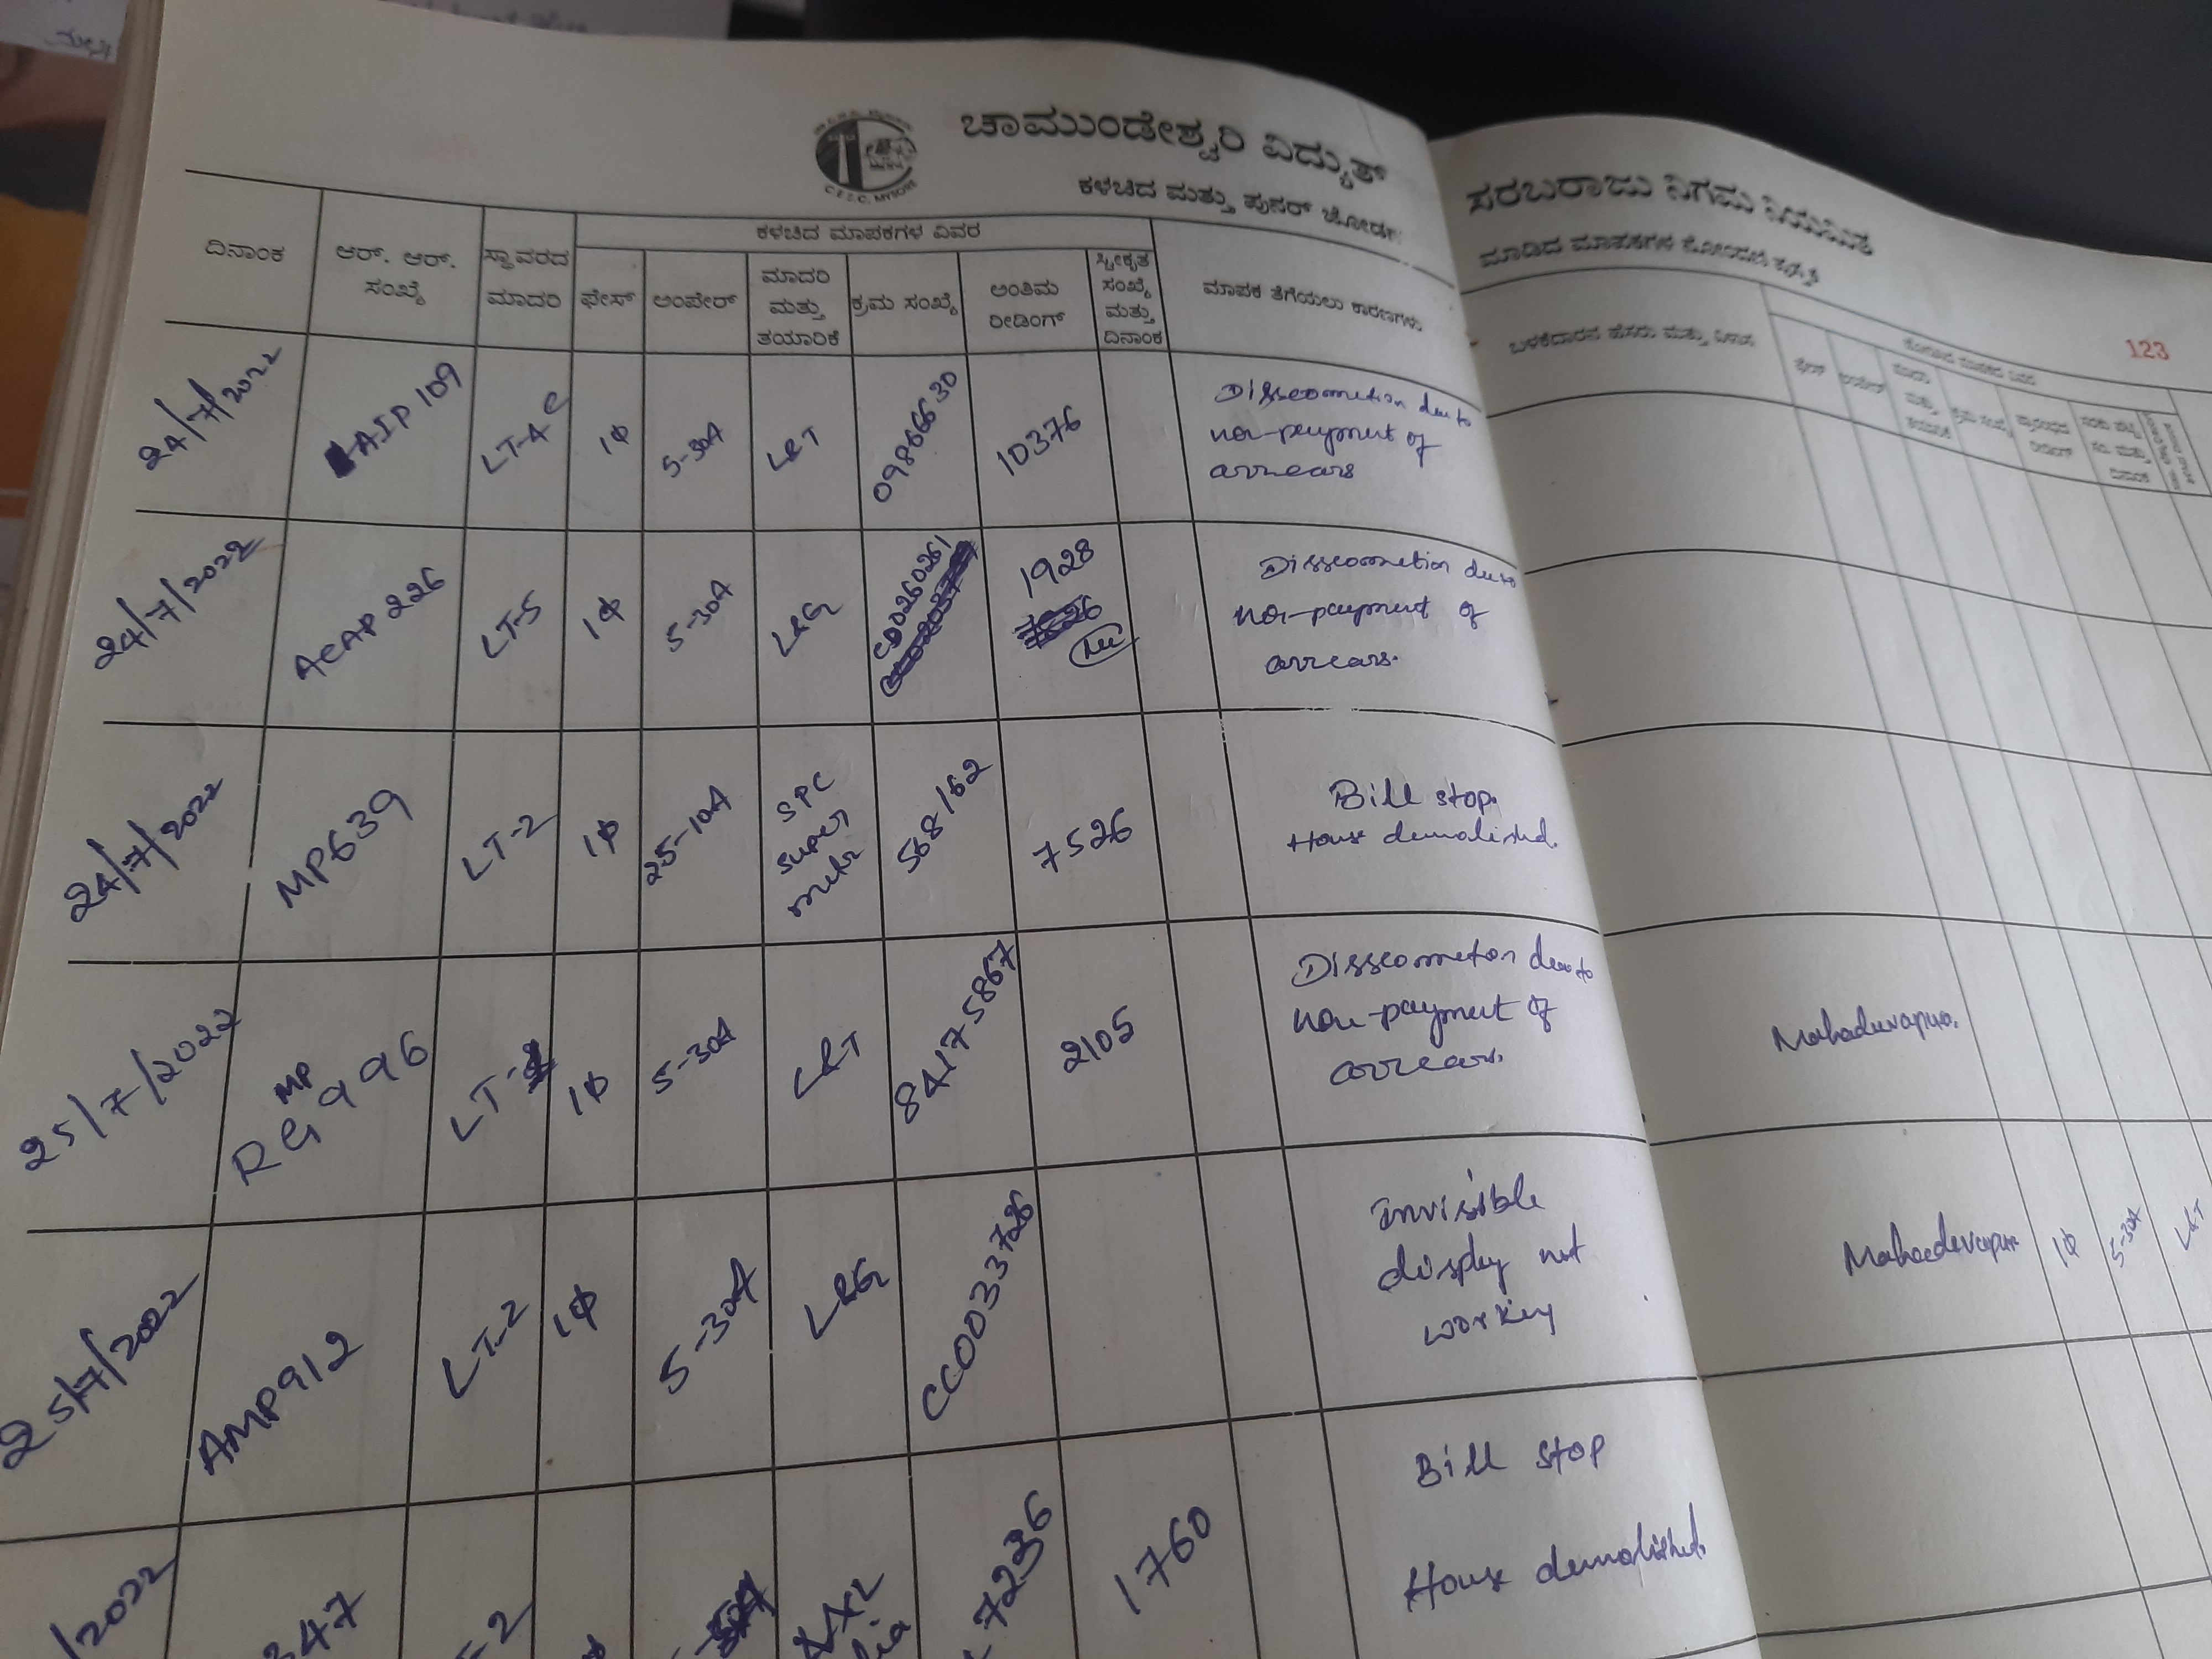 C.E.S.C. MYSORE
ಚಾಮುಂಡೇಶ್ವರಿ ವಿದ್ಯುತ್
ಸರಬರಾಜು ನಿಗಮ ನಿಯಮಿತ
ಕಳಚಿದ ಮತ್ತು ಪುನರ್ ಜೋಡಣೆ
ಮಾಡಿದ ಮಾಪಕಗಳ ನೋಂದಣಿ ಪುಸ್ತಕ
123
ದಿನಾಂಕ
ಆರ್. ಆರ್.
ಸಂಖ್ಯೆ
ಸ್ಥಾವರದ
ಮಾದರಿ
ಕಳಚಿದ ಮಾಪಕಗಳ ವಿವರ
ಫೇಸ್
ಅಂಪೇರ್
ಮಾದರಿ
ಮತ್ತು
ತಯಾರಿಕೆ
ಕ್ರಮ ಸಂಖ್ಯೆ
ಅಂತಿಮ
ರೀಡಿಂಗ್
ಸ್ವೀಕೃತ
ಸಂಖ್ಯೆ
ಮತ್ತು
ದಿನಾಂಕ
ಮಾಪಕ ತೆಗೆಯಲು ಕಾರಣಗಳು
ಬಳಕೆದಾರನ ಹೆಸರು ಮತ್ತು ವಿಳಾಸ
24/7/2022
AIP 109
LT-4 C
1Φ
5-30A
L&T
09866630
10376
Dissconnetion due to
non-payment of
arrears
24/7/2022
ACAP 226
LT-5
1Φ
5-30A
L&G
CD0260261
1928
Dissconnetion due to
non-payment of
arrears.
24/7/2022
MP639
LT-2
1Φ
25-10A
SPC
super
meter
568162
7526
Bill stop.
House demolished.
25/7/2022
MP
RG 996
LT-
1Φ
5-30A
L&T
84175867
2105
Dissconneton due to
non-payment of
arrears.
Mahadevapura.
25/7/2022
AMP912
LT-2
1Φ
5-30A
L&G
CC0033726
Invisible
display not
working
Mahadevapura
1Φ
5-30A
L&T
/2022
347
-2
7236
1760
Bill stop
House demolished.